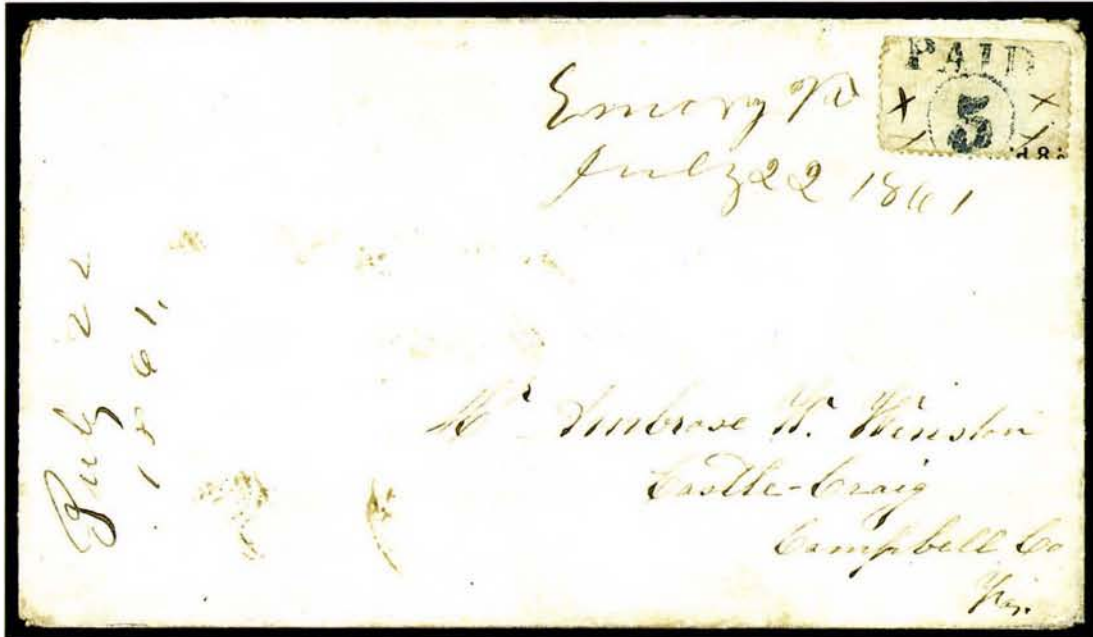 PAID
5
Emory Va
July 22 1861
July 22
1861,
Mr Ambrose W. Winston
Castle-Craig
Campbell Co
Va.